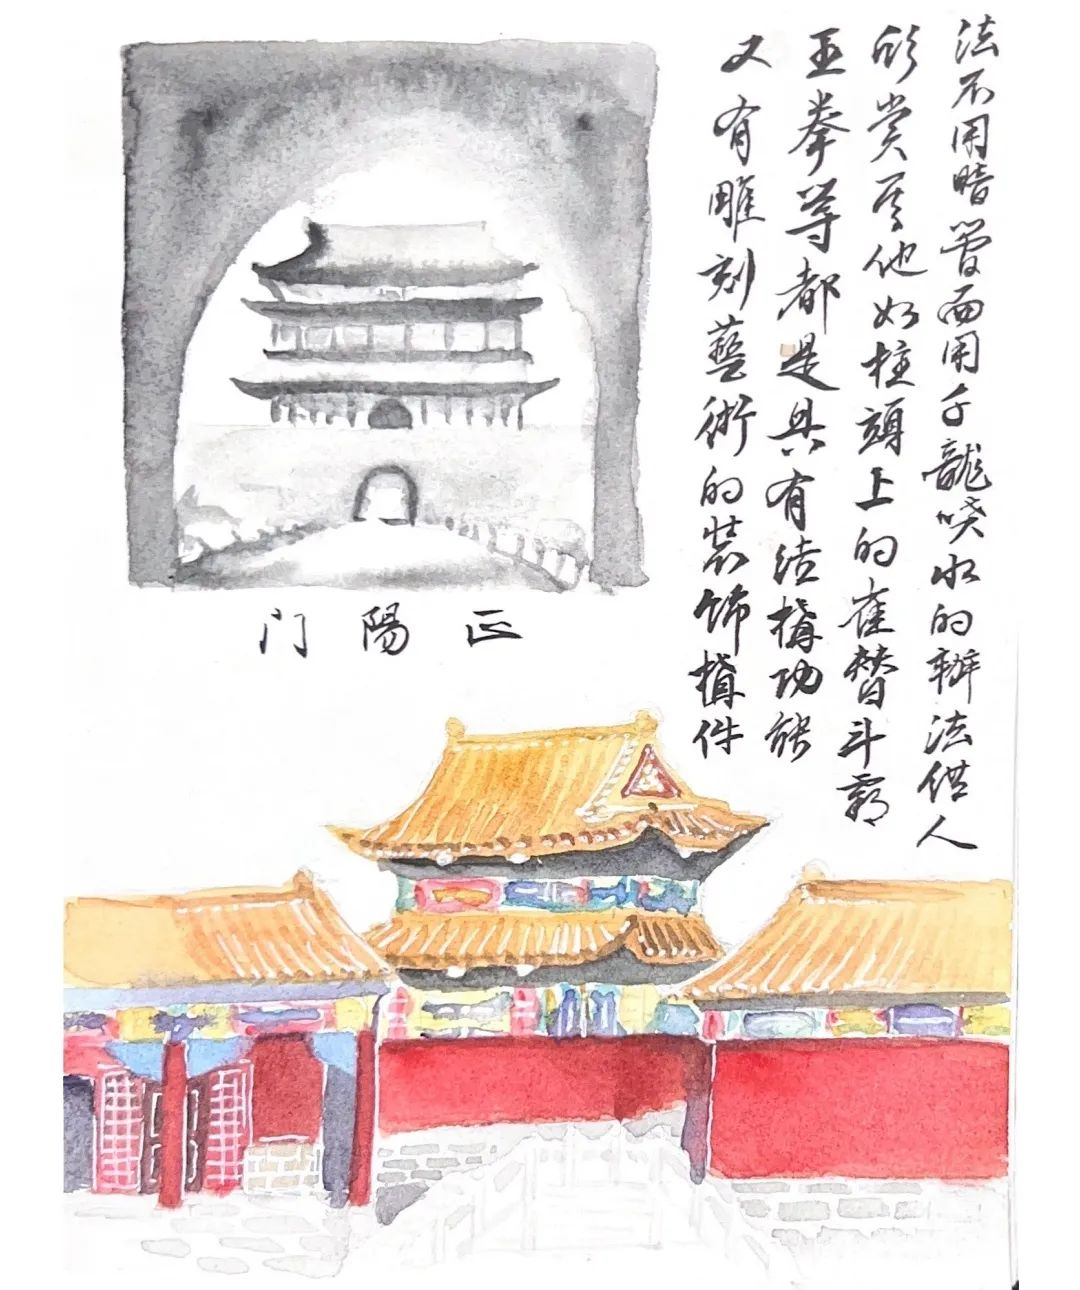 法不用暗管而用千龍喷水的辦法供人
欣赏其他如柱頭上的雀替斗霸
王拳等都是具有结構功能
又有雕刻藝術的装饰構件
正陽门